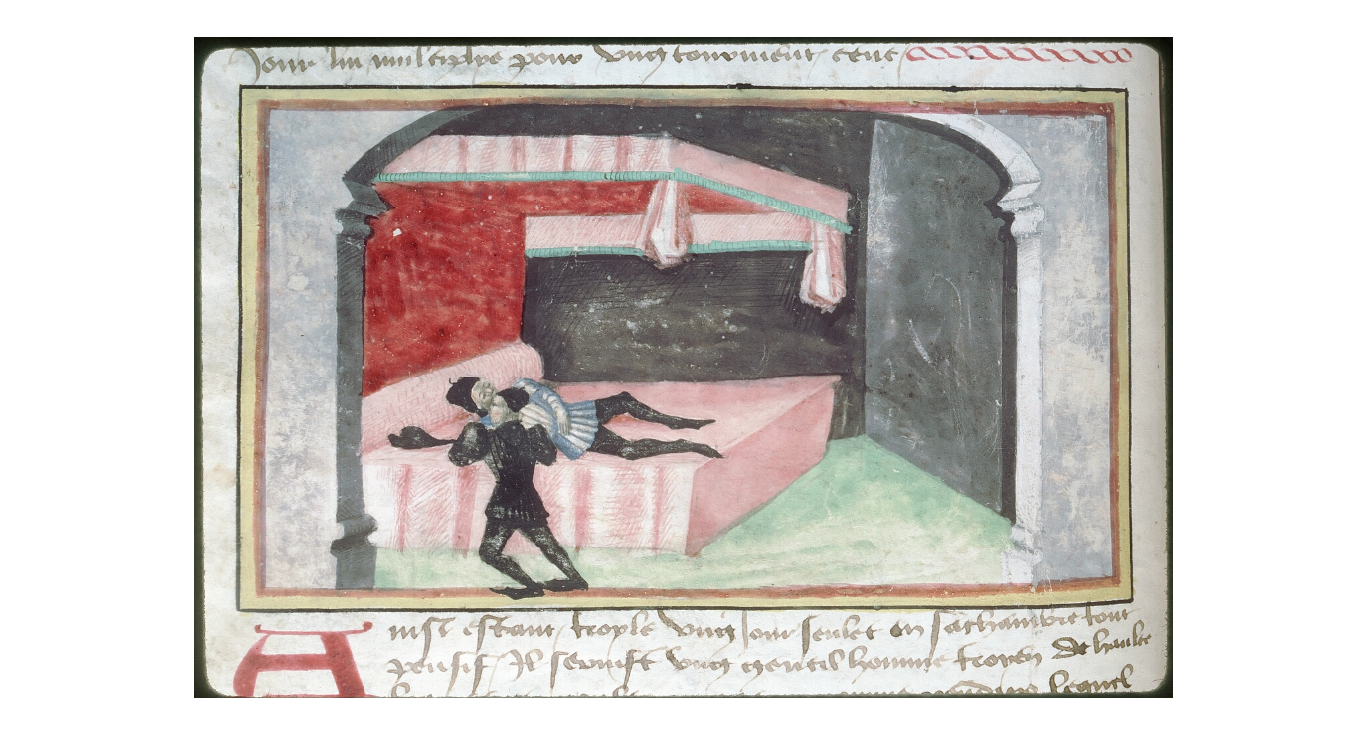 Jour lui multeplye pour ung tourment cent
Ainsi estant troyle ung Jour seulet en sa chambre tout
pensif Il sourvist ung gentil homme troyen de hault
lequel